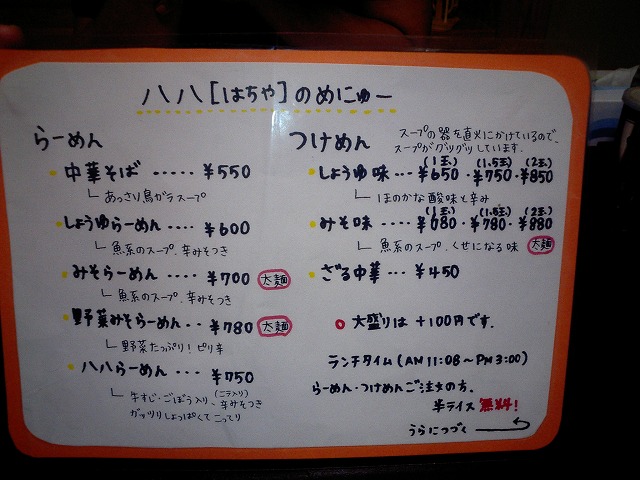 八八[はちや]のめにゅー
らーめん
中華そば ····· ¥550
あっさり鳥ガラスープ
しょうゆらーめん ···· ¥600
魚系のスープ.辛みそつき
みそらーめん ····· ¥700 太麺
魚系のスープ.辛みそつき
野菜みそらーめん ·· ¥780 太麺
野菜たっぷり!ピリ辛
八八らーめん ··· ¥750
牛すじ·ごぼう入り、(ニラ入り)辛みそつき
ガッツリしょっぱくてこってり
つけめん
スープの器を直火にかけているので、
スープがグツグツしています.
(1玉) (1.5玉) (2玉)
しょうゆ味 ··· ¥650 · ¥750 · ¥850
ほのかな酸味と辛み
(1玉) (1.5玉) (2玉)
みそ味 ···· ¥680 · ¥780 · ¥880
魚系のスープ.くせになる味 太麺
ざる中華 ··· ¥450
大盛りは +100円です.
ランチタイム(AM11:08~PM3:00)
らーめん·つけめんご注文の方.
半ライス 無料!
うらにつづく